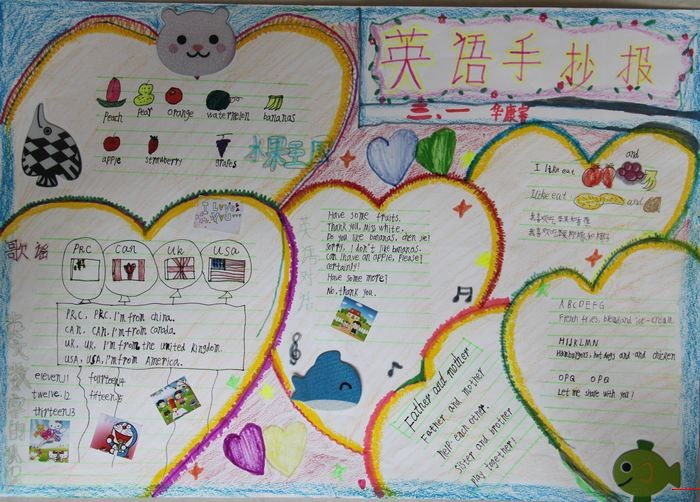 英语手抄报
三、一 华康
peach pear orange watermelon bananas
apple strawberry grapes
水果王国
I Love
You
歌谣
PRC CAN UK USA
P.R.C, PRC. I'm from china.
CAN, CAN. I'm from Canada.
UK, UK, I'm from the united kingdom.
USA, USA, I'm from America.
eleven11 fourteen14
twelve12 fifteen15
thirteen13
英语
Have some fruits.
Thank you, Miss white.
Do you like bananas, chen
Sorry, I don't like bananas.
can I have an apple, please?
certainly!
Have some more?
No, thank you.
Father and mother
Father and mother
Help each other.
Sister and brother
play together!
I like eat and
I like eat and
我喜欢吃
我喜欢吃
A B C D E F G
French fries, bread and ice-cream.
H I J K L M N
Hamburgers, hot dogs and and chicken
O P Q O P Q
Let me share with you!